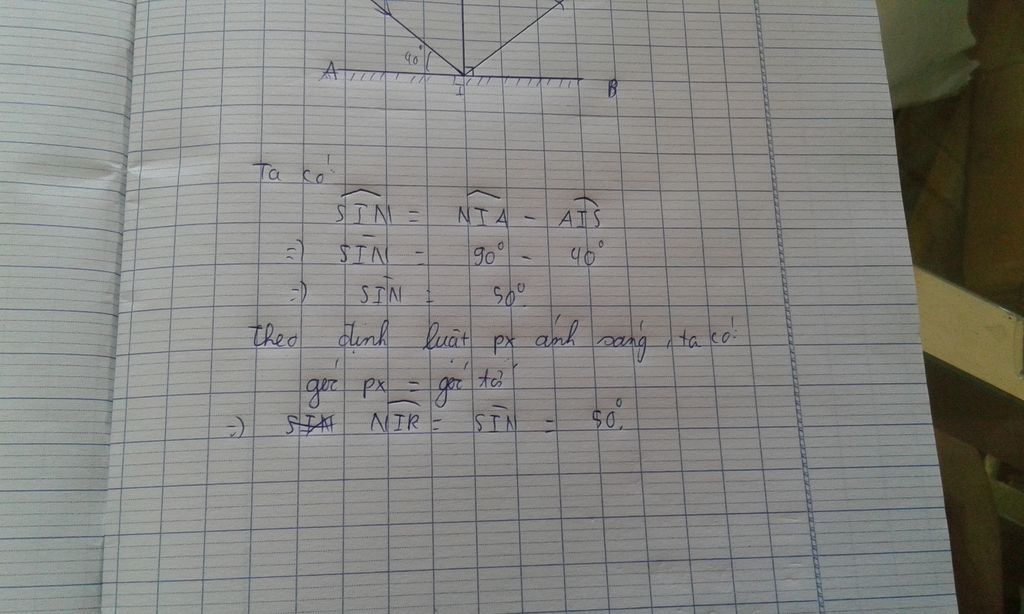 40°
A I B
Ta có:
SIN = NIA - AIS
=) SIN = 90° - 40°
=) SIN = 50°.
Theo định luật px ánh sáng, ta có:
góc px = góc tới
=) SIN NIR = SIN = 50°.